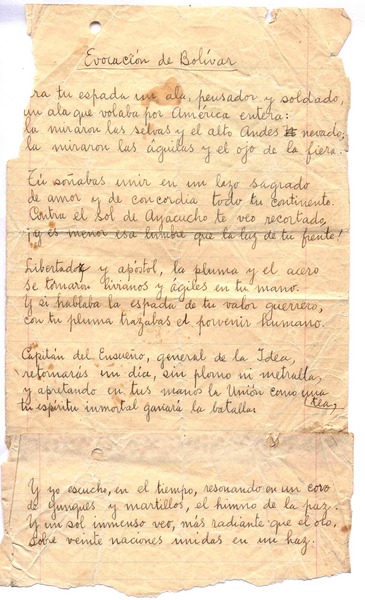 Evocación de Bolívar
ra tu espada un ala, pensador y soldado,
un ala que volaba por América entera:
la miraron las selvas y el alto Andes nevado;
la miraron las águilas y el ojo de la fiera.
Tú soñabas unir en un lazo sagrado
de amor y de concordia todo tu continente.
Contra el sol de Ayacucho te veo recortado
¡y es menor esa lumbre que la luz de tu frente!
Libertador y apóstol, la pluma y el acero
se tornaron livianos y ágiles en tu mano.
Y si hablaba la espada de tu valor guerrero,
con tu pluma trazabas el porvenir humano.
Capitán del Ensueño, general de la Idea,
retornarás un día, sin plomo ni metralla,
y apretando en tus manos la Unión como una
tea,
tu espíritu inmortal ganará la batalla.
Y yo escucho, en el tiempo, resonando en un coro
de yunques y martillos, el himno de la paz.
Y un sol inmenso veo, más radiante que el oro,
sobre veinte naciones unidas en un haz.